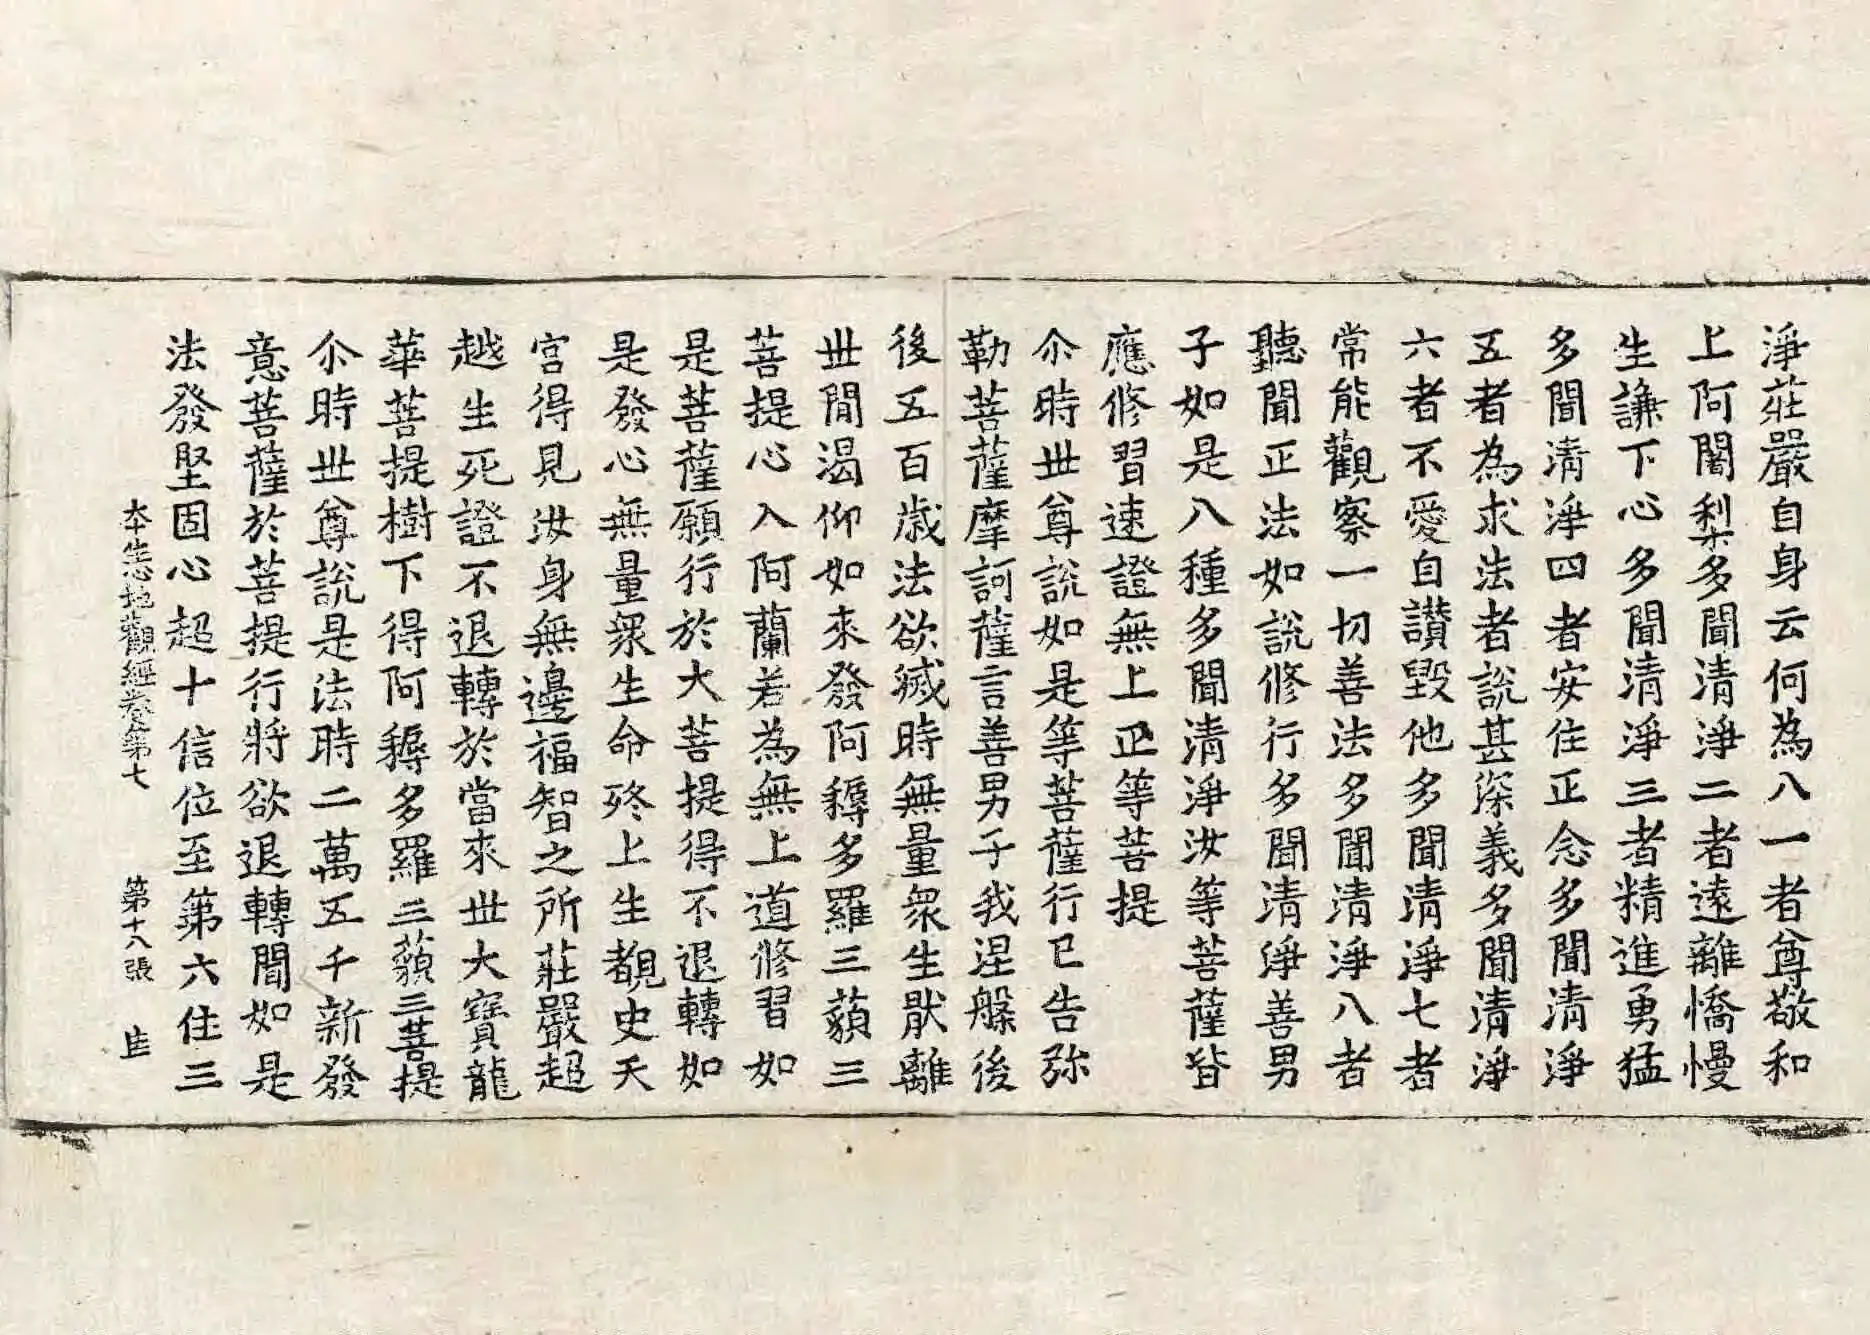 淨莊嚴自身云何為八一者尊敬和
上阿闍梨多聞清淨二者遠離憍慢
生謙下心多聞清淨三者精進勇猛
多聞清淨四者安住正念多聞清淨
五者為求法者說甚深義多聞清淨
六者不愛自讚毀他多聞清淨七者
常能觀察一切善法多聞清淨八者
聽聞正法如說修行多聞清淨善男
子如是八種多聞清淨汝等菩薩皆
應修習速證無上正等菩提
尒時世尊說如是等菩薩行已告弥
勒菩薩摩訶薩言善男子我涅槃後
後五百歲法欲滅時無量眾生猒離
世閒渴仰如來發阿耨多羅三藐三
菩提心入阿蘭若為無上道修習如
是菩薩願行於大菩提得不退轉如
是發心無量眾生命終上生覩史天
宮得見汝身無邊福智之所莊嚴超
越生死證不退轉於當來世大寶龍
華菩提樹下得阿耨多羅三藐三菩提
尒時世尊說是法時二萬五千新發
意菩薩於菩提行將欲退轉聞如是
法發堅固心超十信位至第六住三
本生心地觀經卷第七 第十八張